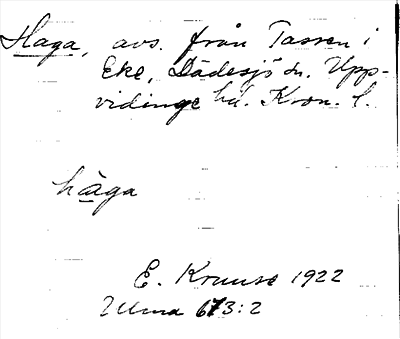 Haga, avs. från Tassen i
Eke, Dädesjö sn. Upp-
vidinge hd. Kron. l.
håga
E. Kruuse 1922
Ulma 673:2